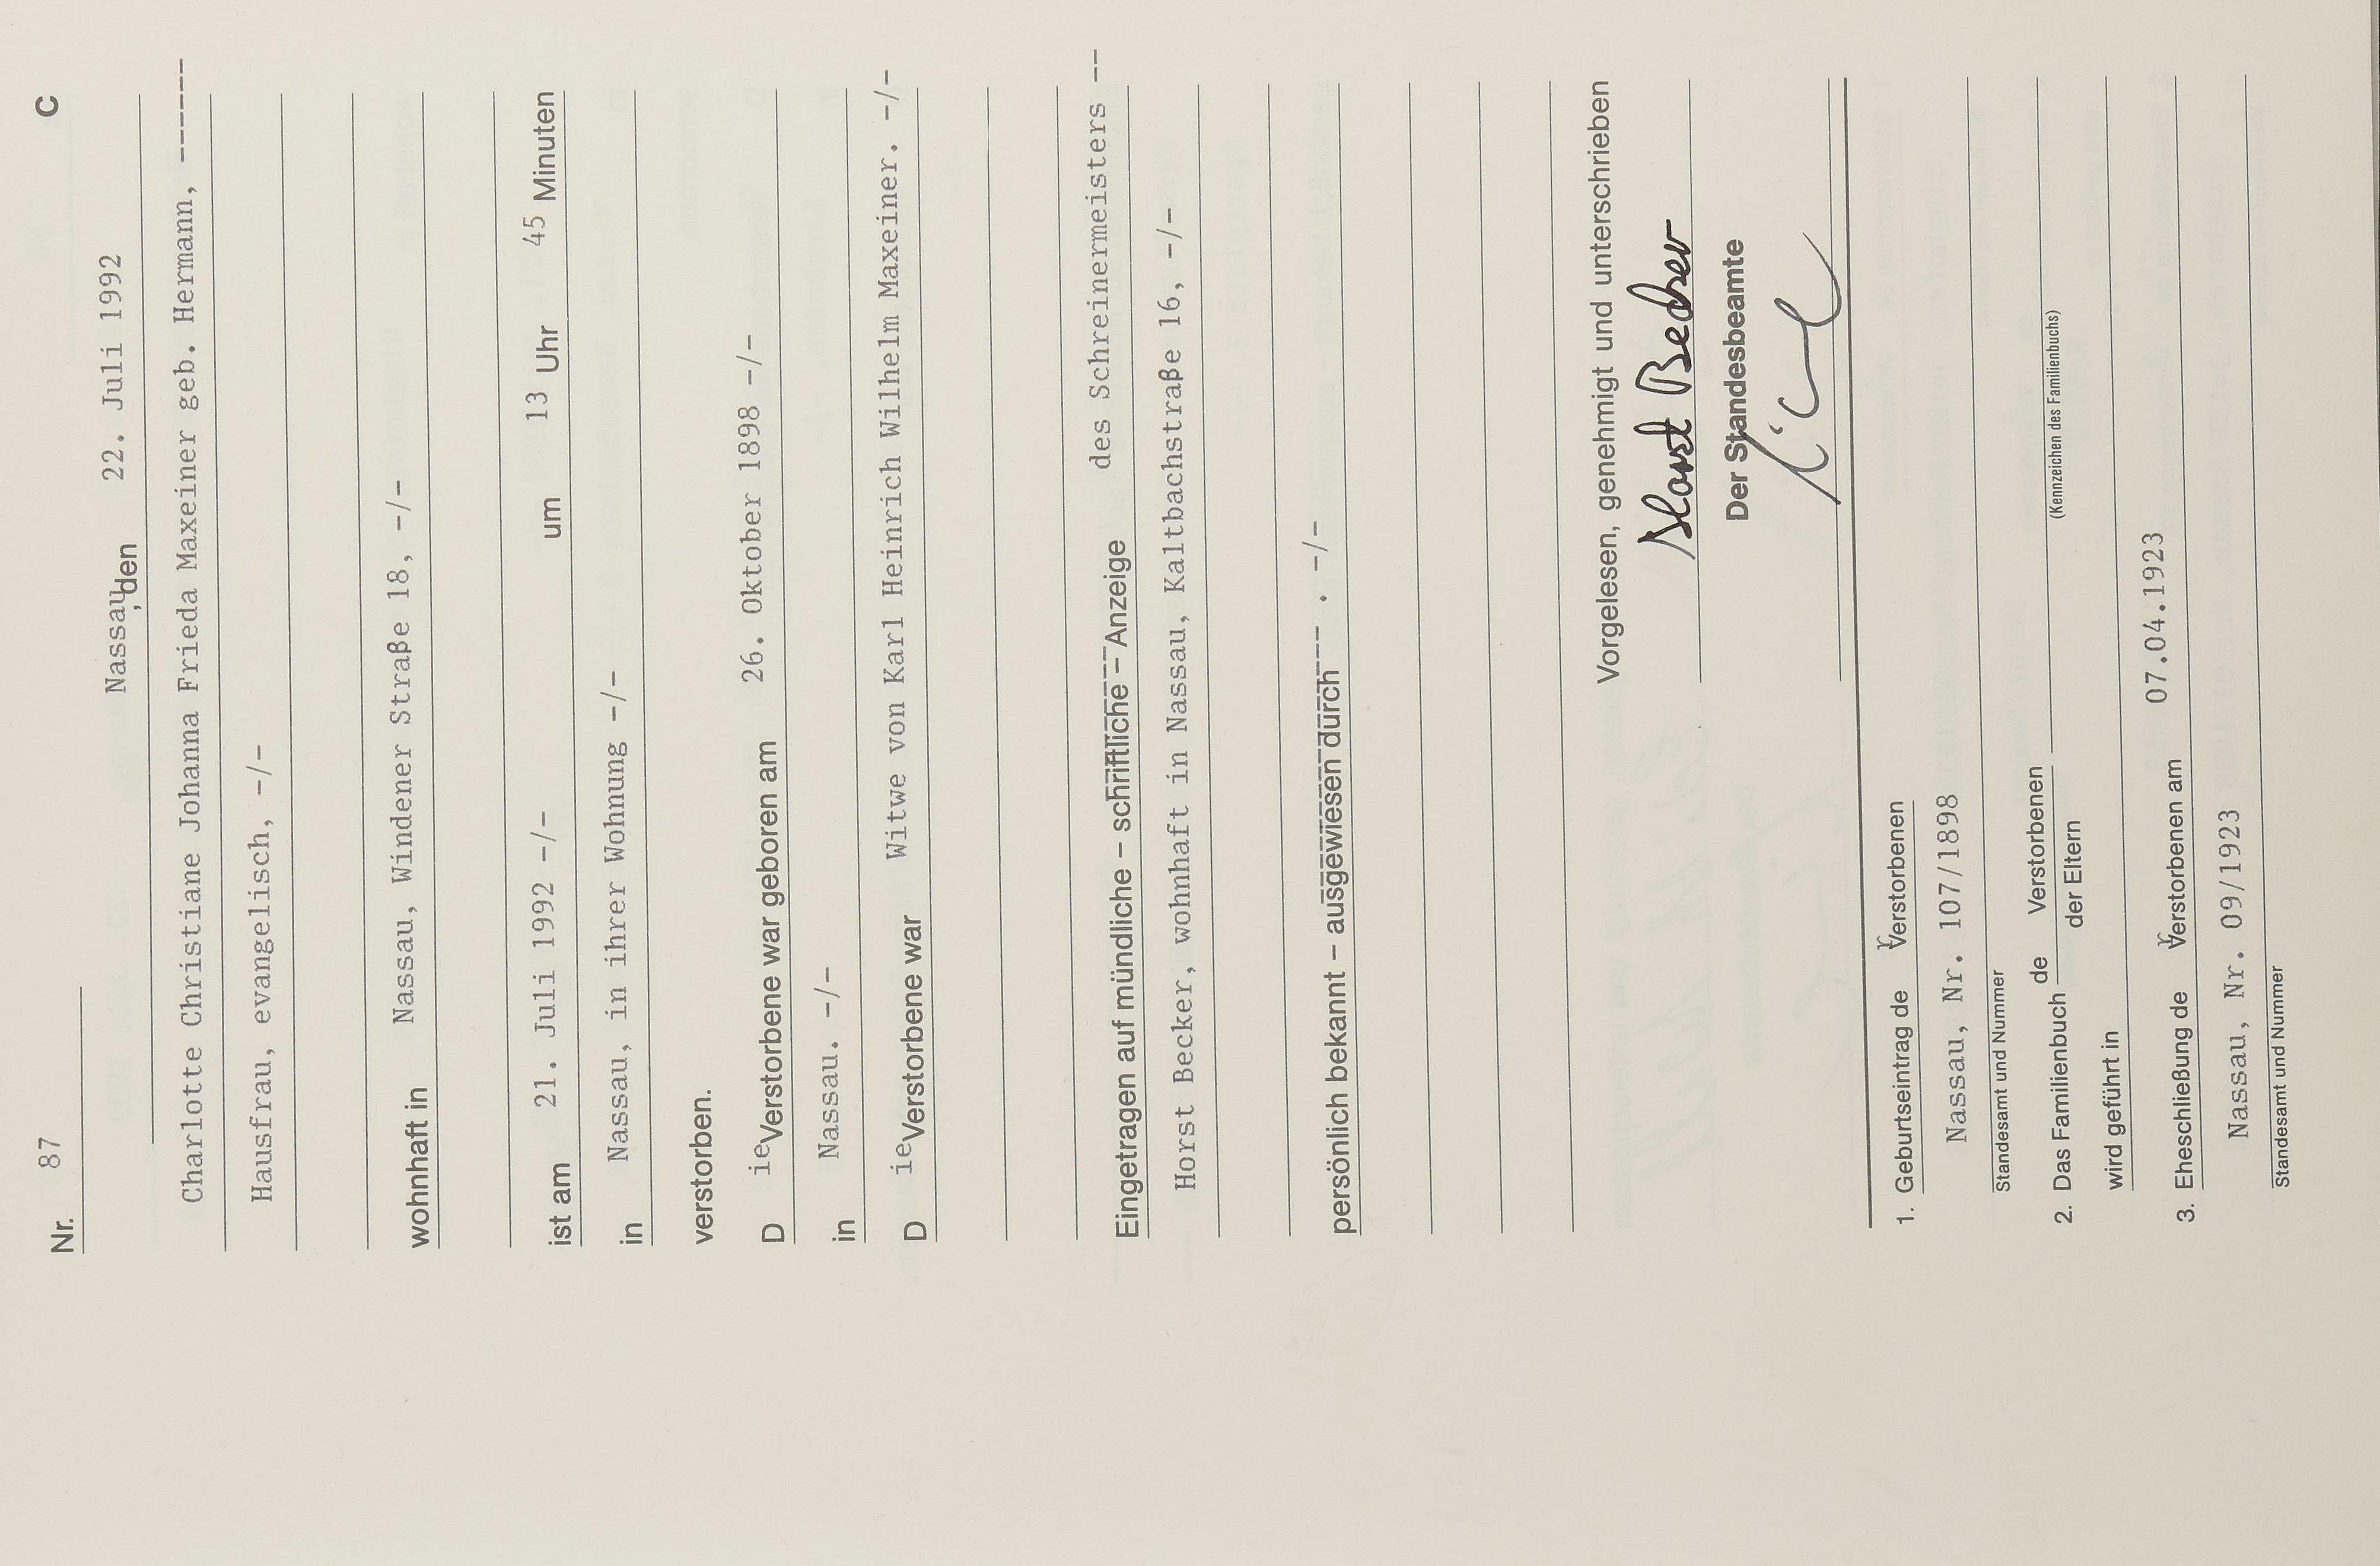 Nr. 87 C
Nassau, den 22. Juli 1992
Charlotte Christiane Johanna Frieda Maxeiner geb. Hermann, ------
Hausfrau, evangelisch, -/-
wohnhaft in Nassau, Windener Straße 18, -/-
ist am 21. Juli 1992 -/- um 13 Uhr 45 Minuten
in Nassau, in ihrer Wohnung -/-
verstorben.
Die Verstorbene war geboren am 26. Oktober 1898 -/-
in Nassau. -/-
Die Verstorbene war Witwe von Karl Heinrich Wilhelm Maxeiner. -/-
Eingetragen auf mündliche – schriftliche – Anzeige des Schreinermeisters --
Horst Becker, wohnhaft in Nassau, Kaltbachstraße 16, -/-
persönlich bekannt – ausgewiesen durch --- . -/-
Vorgelesen, genehmigt und unterschrieben
Horst Becker
Der Standesbeamte
1. Geburtseintrag der Verstorbenen
Nassau, Nr. 107/1898
Standesamt und Nummer
2. Das Familienbuch de Verstorbenen
der Eltern
(Kennzeichen des Familienbuchs)
wird geführt in
3. Eheschließung der Verstorbenen am 07.04.1923
Nassau, Nr. 09/1923
Standesamt und Nummer